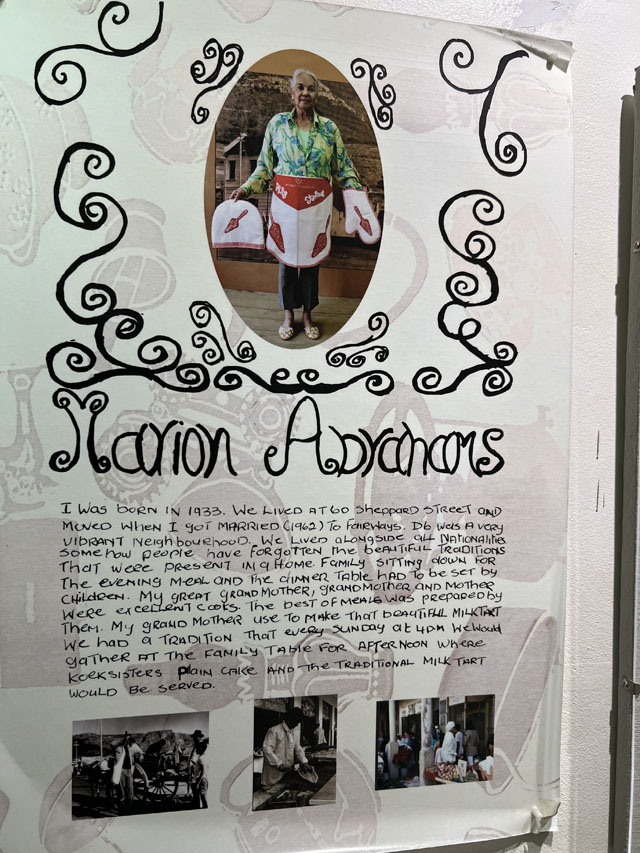 Marion Abrahams
I WAS BORN IN 1933. WE LIVED AT 60 SHEPPARD STREET AND
MOVED WHEN I GOT MARRIED (1962) TO FAIRWAYS. D6 WAS A VERY
VIBRANT NEIGHBOURHOOD. WE LIVED ALONGSIDE ALL NATIONALITIES
SOMEHOW PEOPLE HAVE FORGOTTEN THE BEAUTIFUL TRADITIONS
THAT WERE PRESENT IN A HOME. FAMILY SITTING DOWN FOR
THE EVENING MEAL AND THE DINNER TABLE HAD TO BE SET BY
CHILDREN. MY GREAT GRANDMOTHER, GRANDMOTHER AND MOTHER
WERE EXCELLENT COOKS. THE BEST OF MEALS WAS PREPARED BY
THEM. MY GRANDMOTHER USE TO MAKE THAT BEAUTIFUL MILKTART
WE HAD A TRADITION THAT EVERY SUNDAY AT 4PM WE WOULD
GATHER AT THE FAMILY TABLE FOR AFTERNOON WHERE
KOEKSISTERS PLAIN CAKE AND THE TRADITIONAL MILKTART
WOULD BE SERVED.